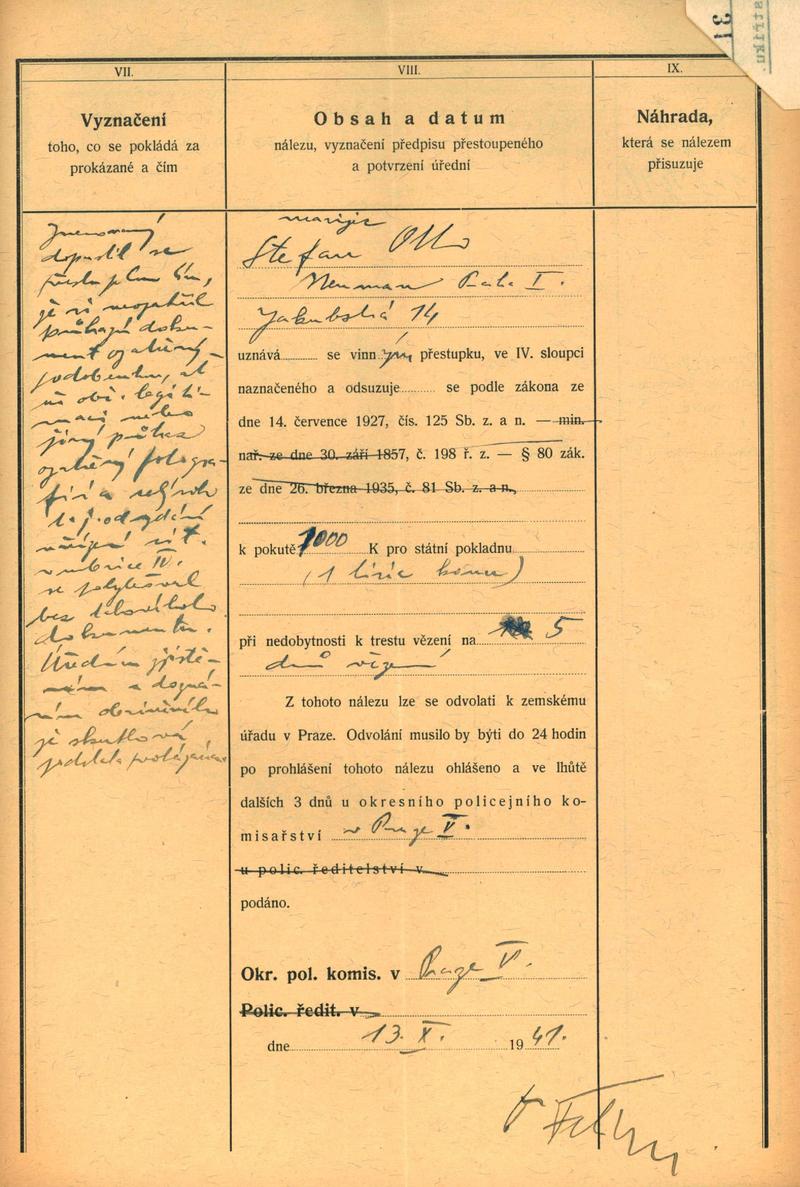 31
VII.
Vyznačení
toho, co se pokládá za
prokázané a čím
Jmenovaný
dopustil se
přestupku tím,
že si neopatřil
průkazní doku-
ment opatřený
podobenkou, ať
už obč. legiti-
maci nebo
jiný průkaz
opatřený fotogra-
fií a
nařízení
v rubrice IV.
se pohyboval
bez takového
dokumentu.
Úředním zjiště-
ním a dozná-
ním obviněného
je skutková
podstata prokázána
VIII.
Obsah a datum
nálezu, vyznačení předpisu přestoupeného
a potvrzení úřední
Stefan Otto
Neuman Praha I.
Jakubská 14
uznává se vinným přestupku, ve IV. sloupci
naznačeného a odsuzuje se podle zákona ze
dne 14. července 1927, čís. 125 Sb. z. a n. — min.
nař. ze dne 30. září 1857, č. 198 ř. z. — § 80 zák.
ze dne 26. března 1935, č. 81 Sb. z. a n.,
k pokutě 1000 K pro státní pokladnu
(1 tisíc korun)
při nedobytnosti k trestu vězení na 5
dnů vězení
Z tohoto nálezu lze se odvolati k zemskému
úřadu v Praze. Odvolání musilo by býti do 24 hodin
po prohlášení tohoto nálezu ohlášeno a ve lhůtě
dalších 3 dnů u okresního policejního ko-
misařství v Praze V.
u polic. ředitelství v
podáno.
Okr. pol. komis. v Praze V.
Polic. ředit. v
dne 13. X. 1941.
IX.
Náhrada,
která se nálezem
přisuzuje